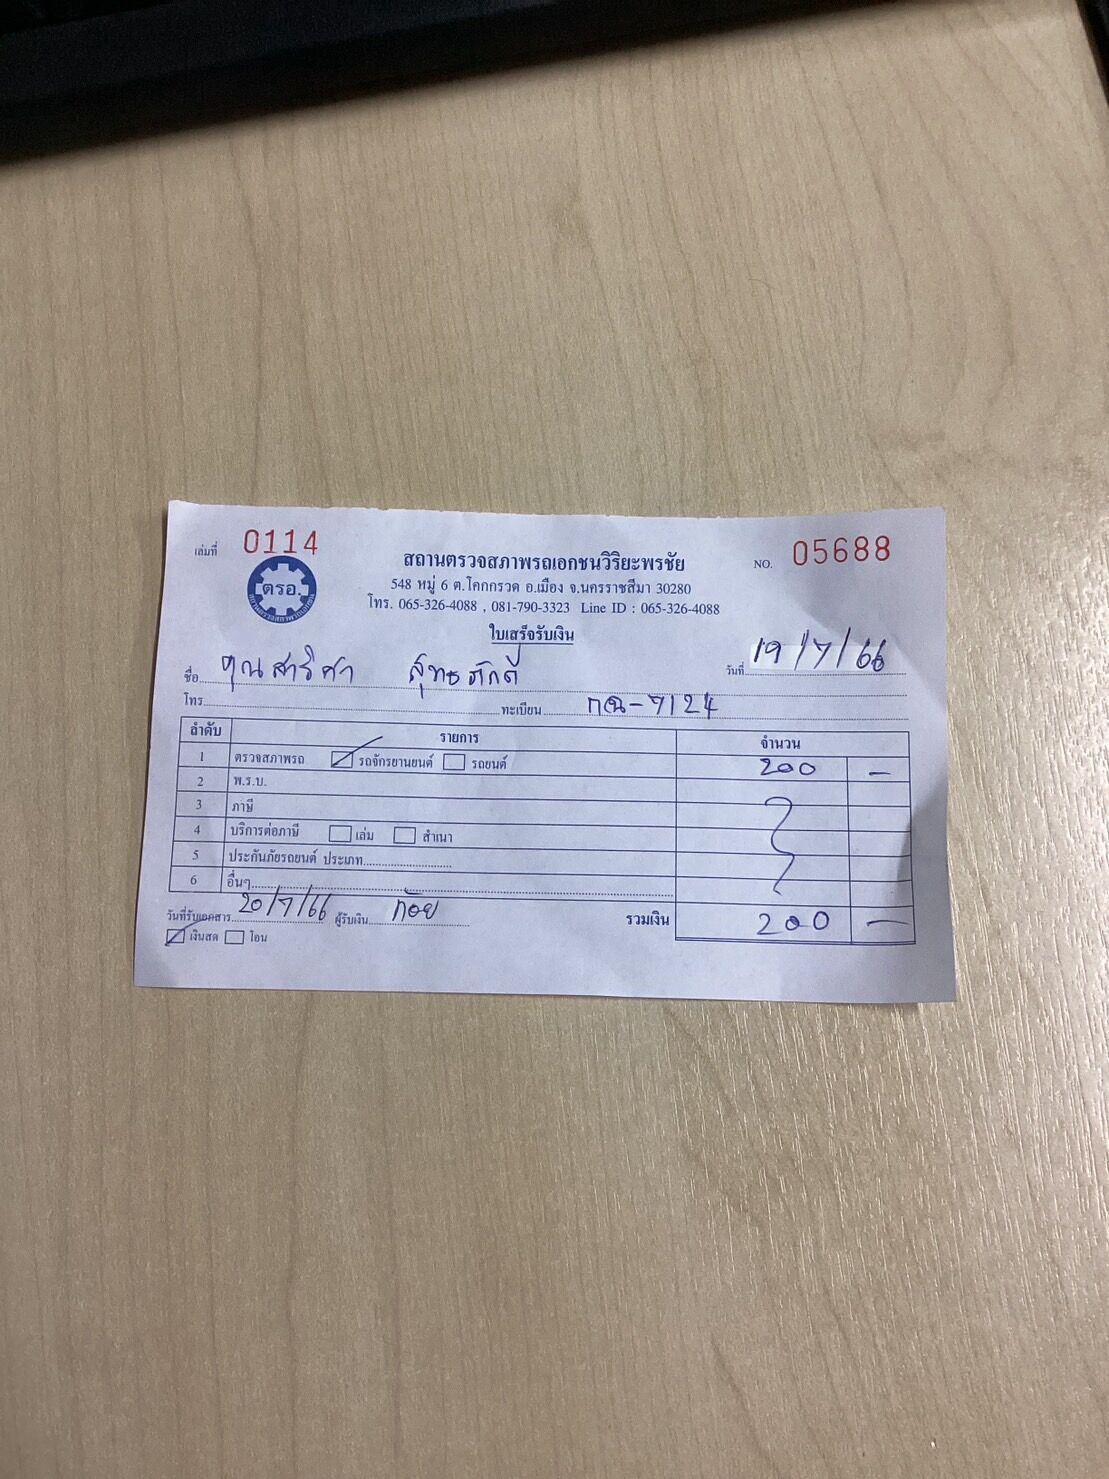 เล่มที่ 0114
สถานตรวจสภาพรถเอกชนวิริยะพรชัย
NO. 05688
ตรอ.
548 หมู่ 6 ต.โคกกรวด อ.เมือง จ.นครราชสีมา 30280
โทร. 065-326-4088 , 081-790-3323 Line ID : 065-326-4088
ใบเสร็จรับเงิน
ชื่อ คุณสาริศา สุทธภักดี วันที่ 19/7/66
โทร ทะเบียน กฉ-7124
ลำดับ รายการ จำนวน
1 ตรวจสภาพรถ รถจักรยานยนต์ รถยนต์ 200 -
2 พ.ร.บ.
3 ภาษี
4 บริการต่อภาษี เล่ม สำเนา
5 ประกันภัยรถยนต์ ประเภท
6 อื่นๆ
วันที่รับเอกสาร 20/7/66 ผู้รับเงิน ก้อย รวมเงิน 200 -
เงินสด โอน